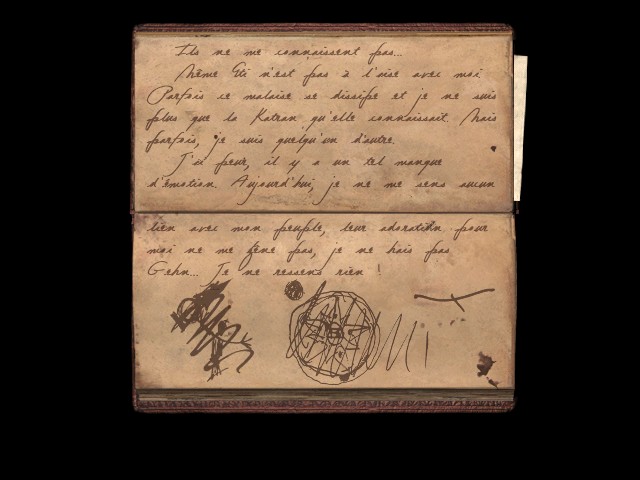 Ils ne me connaissent pas...
Même Eti n'est pas à l'aise avec moi
Parfois ce malaise se dissipe et je ne suis
plus que la Katran qu'elle connaissait. Mais
parfois, je suis quelqu'un d'autre.
J'ai peur, il y a un tel manque
d'émotion. Aujourd'hui, je ne me sens aucun
lien avec mon peuple, leur adoration pour
moi ne me gène pas, je ne hais pas
Gehn... Je ne ressens rien !